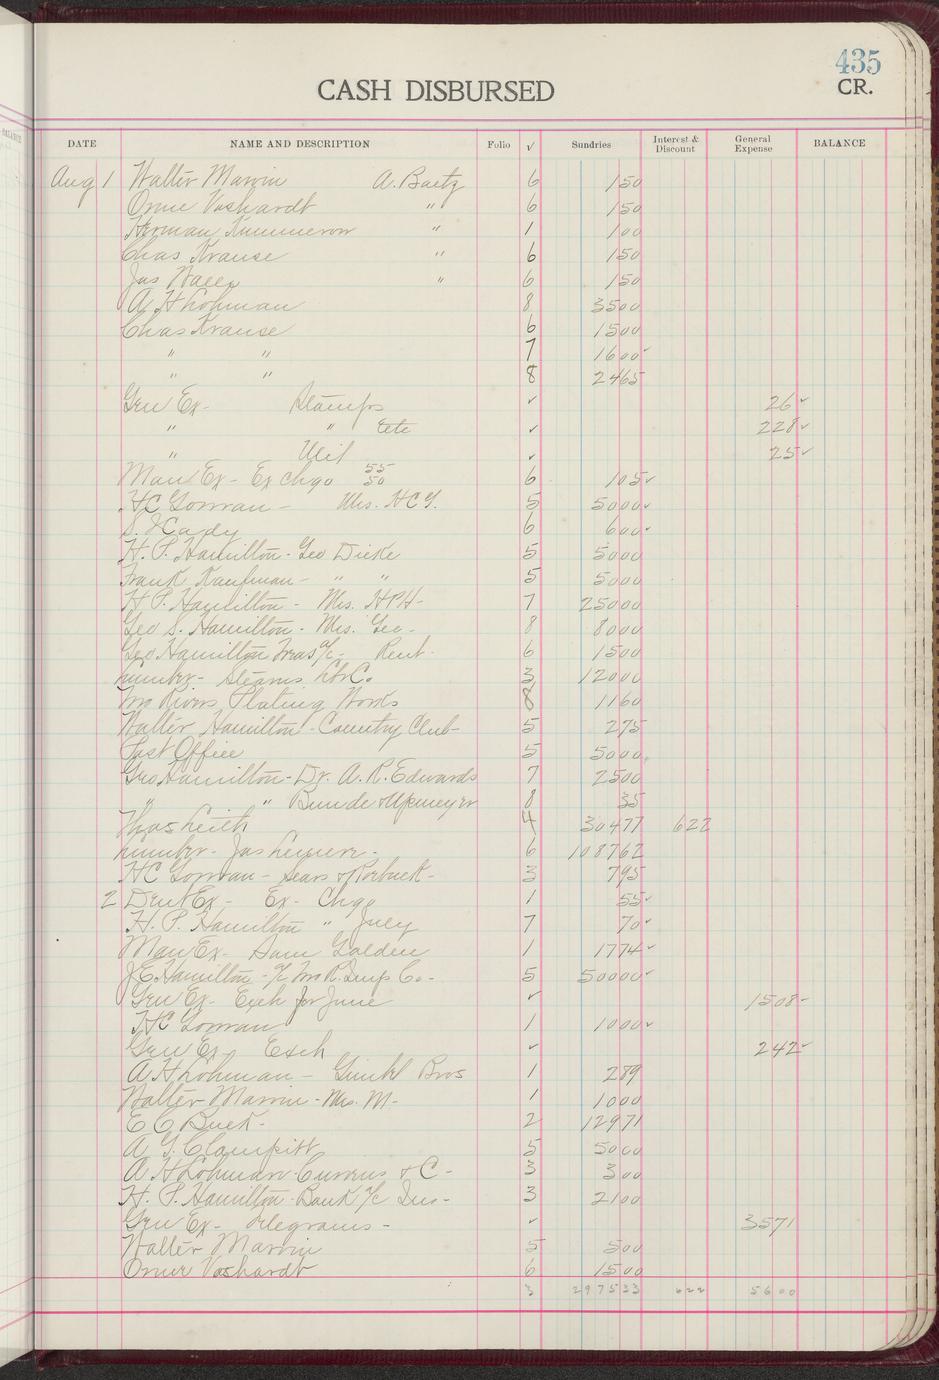 435
CASH DISBURSED CR.
DATE NAME AND DESCRIPTION Folio √ Sundries Interest & Discount General Expense BALANCE
Aug 1 Walter Marvin A. Baetz 6 150
Orme Voshardt " 6 150
Herman Kummerow " 1 100
Chas Krause " 6 150
Jas " 6 150
A H Lohman 8 3500
Chas Krause 6 1500
" " 7 1600✓
" " 8 2465
Gen Ex- Stamps ✓ 26✓
" " ✓ 228✓
" ✓ 25✓
Man Ex- Ex chgo 55 50 6 105✓
HC Gorman - Mrs. HCG. 5 5000✓
S. J Cady 6 600✓
H. P. Hamilton - Geo Dicke 5 5000
Frank Kaufman - " " 5 5000
H P. Hamilton - Mrs. HPH- 7 25000
Geo S. Hamilton - Mrs. Geo- 8 8000
Geo Hamilton Treas a/c- Rent- 6 1500
Lumber- Stearns 3 12000
Two Rivers Plating Works 8 1160
Walter Hamilton - Country Club- 5 275
Post Office 5 5000
Geo Hamilton - Dr. A. R. Edwards 7 2500
" " Bunde & Upmeyer 8 35
Thos Leith 4 30477 622
Lumber- Jas 6 108762
HC Gorman - Sears & Roebuck- 3 795
2 Ex- Ex- Chgo 1 55✓
H. P. Hamilton " July 7 70✓
Man Ex- Sam Golden 1 1774✓
J E Hamilton - a/c Two R. Imp Co- 5 50000✓
Gen Ex- Exch for June ✓ 1508-
HC Gorman 1 1000✓
Gen Ex, Exch ✓ 242✓
A H Lohman - Gimbel Bros 1 289
Walter Marvin - Mrs. M- 1 1000
E C Buck- 2 12971
A G. Clampitt 5 5000
A H Lohman - & C- 3 300
H. P. Hamilton - Bank a/c Ins- 3 2100
Gen Ex- Telegrams- ✓ 3571
Walter Marvin 5 500
Orme Voshardt 6 1500
3 297533 622 5600